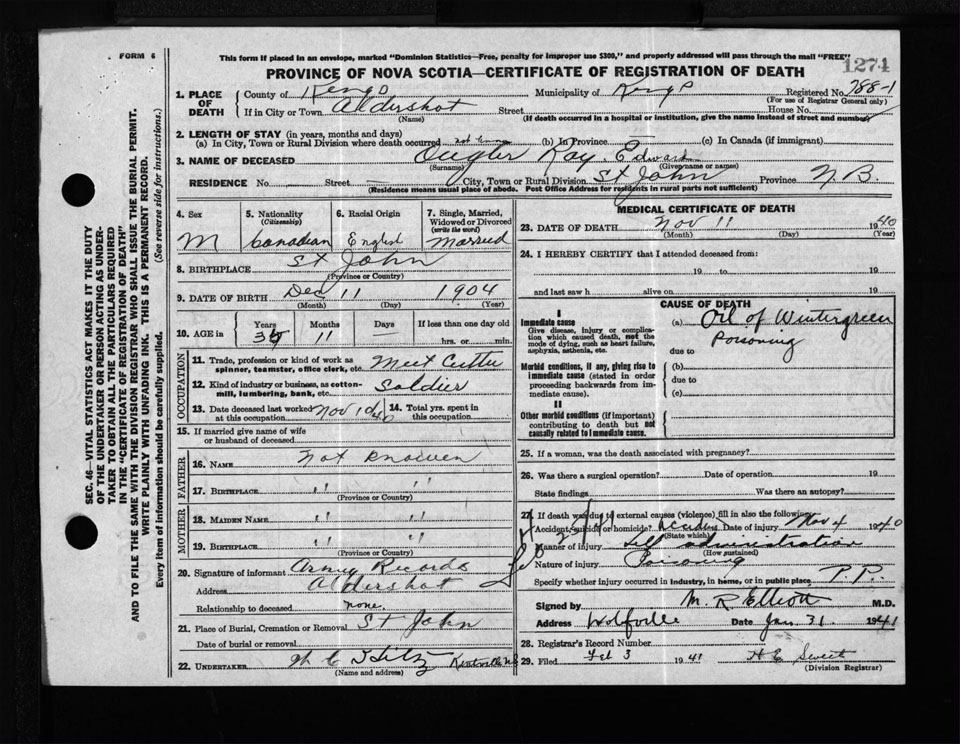 FORM 6
This form if placed in an envelope, marked "Dominion Statistics—Free, penalty for improper use $300," and properly addressed will pass through the mail "FREE"
1274
PROVINCE OF NOVA SCOTIA—CERTIFICATE OF REGISTRATION OF DEATH
SEC. 46—VITAL STATISTICS ACT MAKES IT THE DUTY
OF THE UNDERTAKER OR PERSON ACTING AS UNDER-
TAKER TO OBTAIN ALL THE PARTICULARS REQUIRED
IN THE "CERTIFICATE OF REGISTRATION OF DEATH"
AND TO FILE THE SAME WITH THE DIVISION REGISTRAR WHO SHALL ISSUE THE BURIAL PERMIT.
WRITE PLAINLY WITH UNFADING INK. THIS IS A PERMANENT RECORD.
Every item of information should be carefully supplied. (See reverse side for instructions.)
1. PLACE OF DEATH County of Kings Municipality of Kings Registered No. 788-1
(For use of Registrar General only)
If in City or Town Aldershot Street House No.
(Name) (If death occurred in a hospital or institution, give the name instead of street and number)
2. LENGTH OF STAY (in years, months and days)
(a) In City, Town or Rural Division where death occurred not known (b) In Province (c) In Canada (if immigrant)
3. NAME OF DECEASED Ougler Ray Edward
(Surname) (Given name or names)
RESIDENCE No. Street City, Town or Rural Division St John Province N.B.
(Residence means usual place of abode. Post Office Address for residents in rural parts not sufficient)
4. Sex M
5. Nationality (Citizenship) Canadian
6. Racial Origin English
7. Single, Married, Widowed or Divorced (write the word) Married
8. BIRTHPLACE St John
(Province or Country)
9. DATE OF BIRTH Dec 11 1904
(Month) (Day) (Year)
10. AGE in Years 35 Months 11 Days If less than one day old
hrs. or min.
OCCUPATION
11. Trade, profession or kind of work as spinner, teamster, office clerk, etc. Meat Cutter
12. Kind of industry or business, as cotton-mill, lumbering, bank, etc. Soldier
13. Date deceased last worked at this occupation Nov 1940 14. Total yrs. spent in this occupation
15. If married give name of wife or husband of deceased
FATHER
16. NAME Not Known
17. BIRTHPLACE " "
(Province or Country)
MOTHER
18. MAIDEN NAME " "
19. BIRTHPLACE " "
(Province or Country)
20. Signature of informant Army Records
Address Aldershot
Relationship to deceased none
21. Place of Burial, Cremation or Removal St John
Date of burial or removal
22. UNDERTAKER Kentville N.S.
(Name and address)
MEDICAL CERTIFICATE OF DEATH
23. DATE OF DEATH Nov 11 1940
(Month) (Day) (Year)
24. I HEREBY CERTIFY that I attended deceased from:
19 to 19
and last saw h alive on 19
CAUSE OF DEATH
I
Immediate cause
Give disease, injury or complication which caused death, not the mode of dying, such as heart failure, asphyxia, asthenia, etc.
(a) Oil of Wintergreen Poisoning
due to
Morbid conditions, if any, giving rise to immediate cause (stated in order proceeding backwards from immediate cause).
(b)
due to
(c)
II
Other morbid conditions (if important) contributing to death but not causally related to immediate cause.
25. If a woman, was the death associated with pregnancy?
26. Was there a surgical operation? Date of operation 19
State findings Was there an autopsy?
27. If death was due to external causes (violence) fill in also the following
Accident, suicide or homicide? Date of injury Nov 4 1940
(State which)
Manner of injury Self administration
(How sustained)
Nature of injury Poisoning
Specify whether injury occurred in industry, in home, or in public place P.P.
Signed by M. R. Elliott M.D.
Address Wolfville Date Jan. 31. 1941
28. Registrar's Record Number
29. Filed Feb 3 1941 H E Sweet
(Division Registrar)